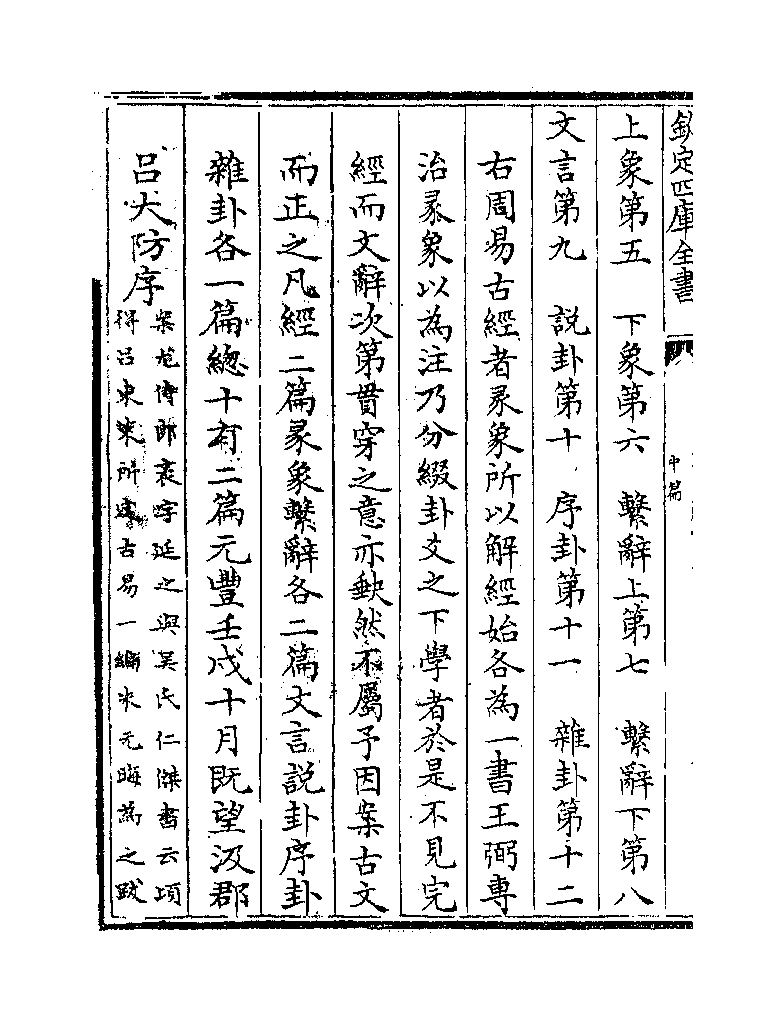 欽定四庫全書
中篇
上象第五　下象第六　繫辭上第七　繫辭下第八
文言第九　說卦第十　序卦第十一　雜卦第十二
右周易古經者彖象所以解經始各為一書王弼專
治彖象以為注乃分綴卦爻之下學者於是不見完
經而文辭次第貫穿之意亦缺然不屬予因案古文
而正之凡經二篇彖象繫辭各二篇文言說卦序卦
雜卦各一篇總十有二篇元豐壬戌十月既望汲郡
呂大防序
案尤侍郎袤字延之與吳氏仁傑書云頃
得呂東萊所定古易一編朱元晦為之跋